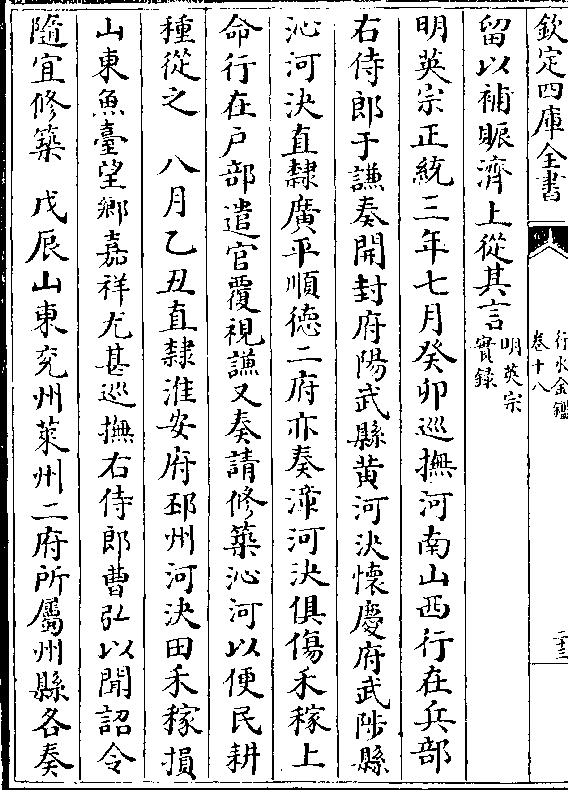 欽定四庫全書
行水金鑑
卷十八
二十三
留以補賑濟上從其言
明英宗
實錄
明英宗正統三年七月癸卯巡撫河南山西行在兵部
右侍郎于謙奏開封府陽武縣黄河決懷慶府武陟縣
沁河決直隸廣平順德二府亦奏漳河決俱傷禾稼上
命行在户部遣官覆視謙又奏請修築沁河以便民耕
種從之　八月乙丑直隸淮安府邳州河決田禾稼損
山東魚臺望鄉嘉祥尤甚巡撫右侍郎曹弘以聞詔令
隨宜修築　戊辰山東兖州萊州二府所屬州縣各奏